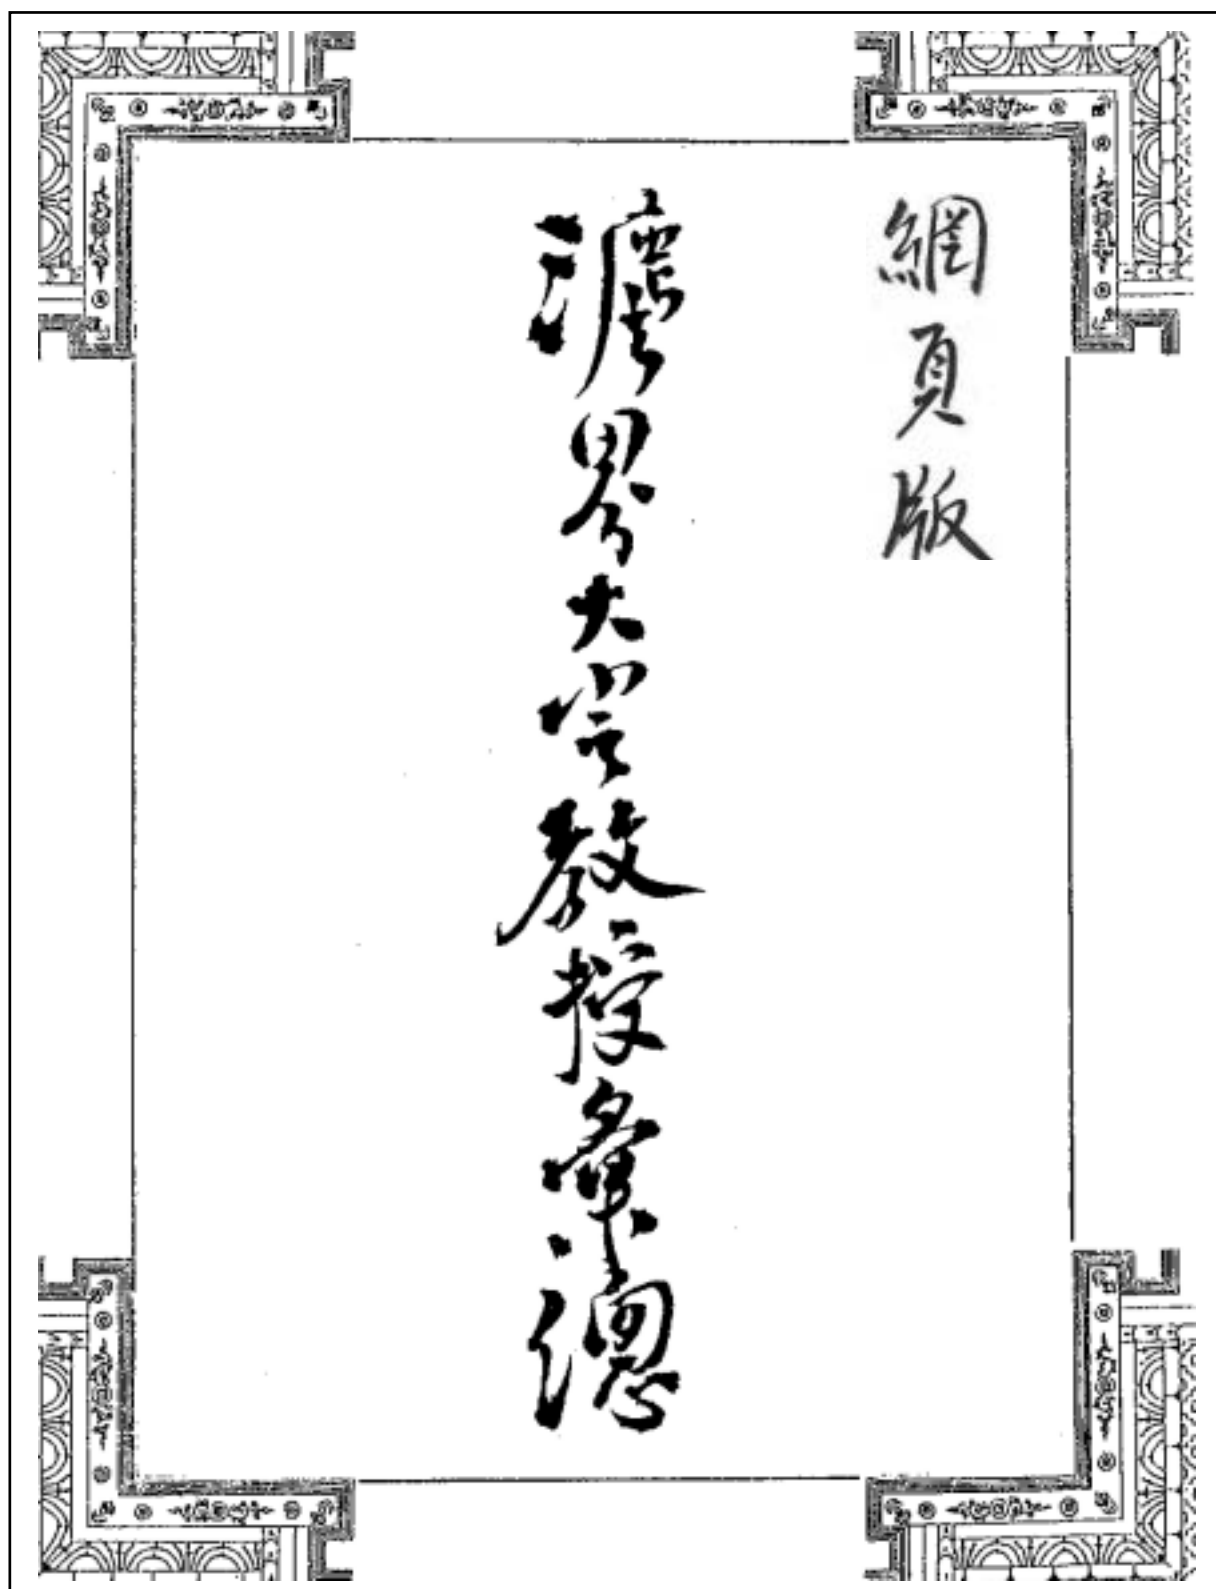 網頁版
灋界大定教授彙總